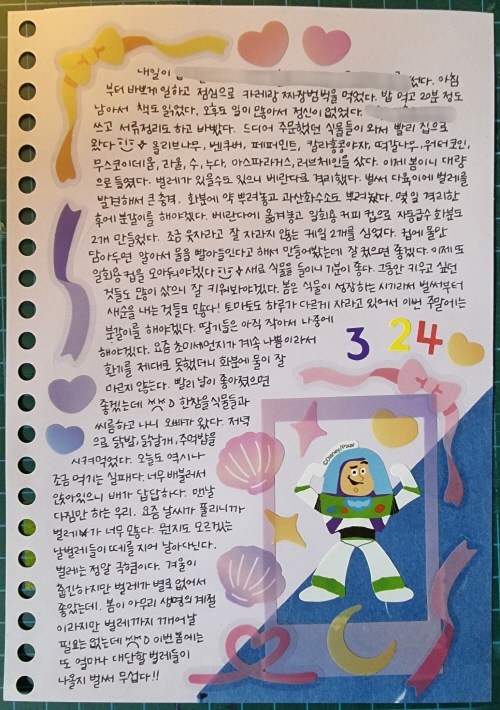 내일이 썼다. 아침
부터 바쁘게 일하고 점심으로 카레랑 짜장범벅을 먹었다. 밥 먹고 20분 정도
남아서 책도 읽었다. 오후도 일이 많아서 정신이 없었다.
쓰고 서류정리도 하고 바빴다. 드디어 주문했던 식물들이 와서 빨리 집으로
왔다 올리브나무, 벤쿠버, 페퍼민트, 칼라홍콩야자, 떡갈나무, 워터코인,
무스코이데움, 라울, 수, 누다, 아스파라거스, 러브체인을 샀다. 이제 봄이니 대량
으로 들였다. 벌레가 있을수도 있으니 베란다로 격리했다. 벌써 다육이에 벌레를
발견해서 큰 충격. 화분에 약 뿌려놓고 과산화수소도 뿌려놨다. 몇 일 격리한
후에 분갈이를 해야겠다. 베란다에 옮겨놓고 일회용 커피 컵으로 자동급수 화분도
2개 만들었다. 조금 웃자라고 잘 자라지 않는 케일 2개를 심었다. 컵에 물만
담아두면 알아서 물을 빨아들인다고 해서 만들어봤는데 잘 컸으면 좋겠다. 이제 또
일회용 컵을 모아둬야겠다 새로 식물을 들이니 기분이 좋다. 그동안 키우고 싶던
것들도 많이 샀으니 잘 키워봐야겠다. 봄은 식물이 성장하는 시기라서 벌써부터
새순을 내는 것들도 많다! 토마토도 하루가 다르게 자라고 있어서 이번 주말에는
분갈이를 해야겠다. 딸기들은 아직 작아서 나중에
해야겠다. 요즘 초미세먼지가 계속 나쁨이라서
환기를 제대로 못했더니 화분에 물이 잘
마르지 않는다. 빨리 날이 좋아졌으면
좋겠는데 한참을 식물들과
씨름하고 나니 오빠가 왔다. 저녁
으로 닭발, 닭날개, 주먹밥을
시켜먹었다. 오늘도 역시나
조금 먹기는 실패다. 너무 배불러서
앉아있으니 배가 답답하다. 맨날
다짐만 하는 우리. 요즘 날씨가 풀리니까
벌레가 너무 많다. 뭔지도 모르겠는
날벌레들이 떼를 지어 날아다닌다.
벌레는 정말 극혐이다. 겨울이
춥긴하지만 벌레가 별로 없어서
좋았는데. 봄이 아무리 생명의 계절
이라지만 벌레까지 깨어날
필요는 없는데 이번 봄에는
또 얼마나 대단할 벌레들이
나올지 벌써 무섭다!!
3 24
©Disney/Pixar